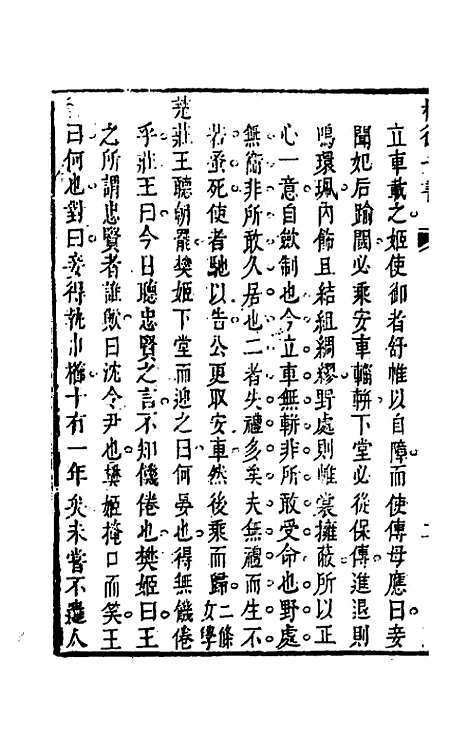 立車載之姬使御者舒帷以自障而使傅母應曰妾
聞妃后踰閾必乘安車輜軿下堂必從保傅進退則
鳴環珮內飾且結紐綢繆野處則帷裳擁蔽所以正
心一意自歛制也今立車無軿非所敢受命也野處
無衛非所敢久居也二者失禮多矣夫無禮而生不
若蚤死使者馳以告公更取安車然後乘而歸二條女學
莊王聽朝罷樊姬下堂而迎之曰何晏也得無饑倦
乎莊王曰今日聽忠賢之言不知饑倦也樊姬曰王
之所謂忠賢者誰歟曰沈令尹也樊姬掩口而笑王
曰何也對曰妾得執巾櫛十有一年矣未嘗不遣人